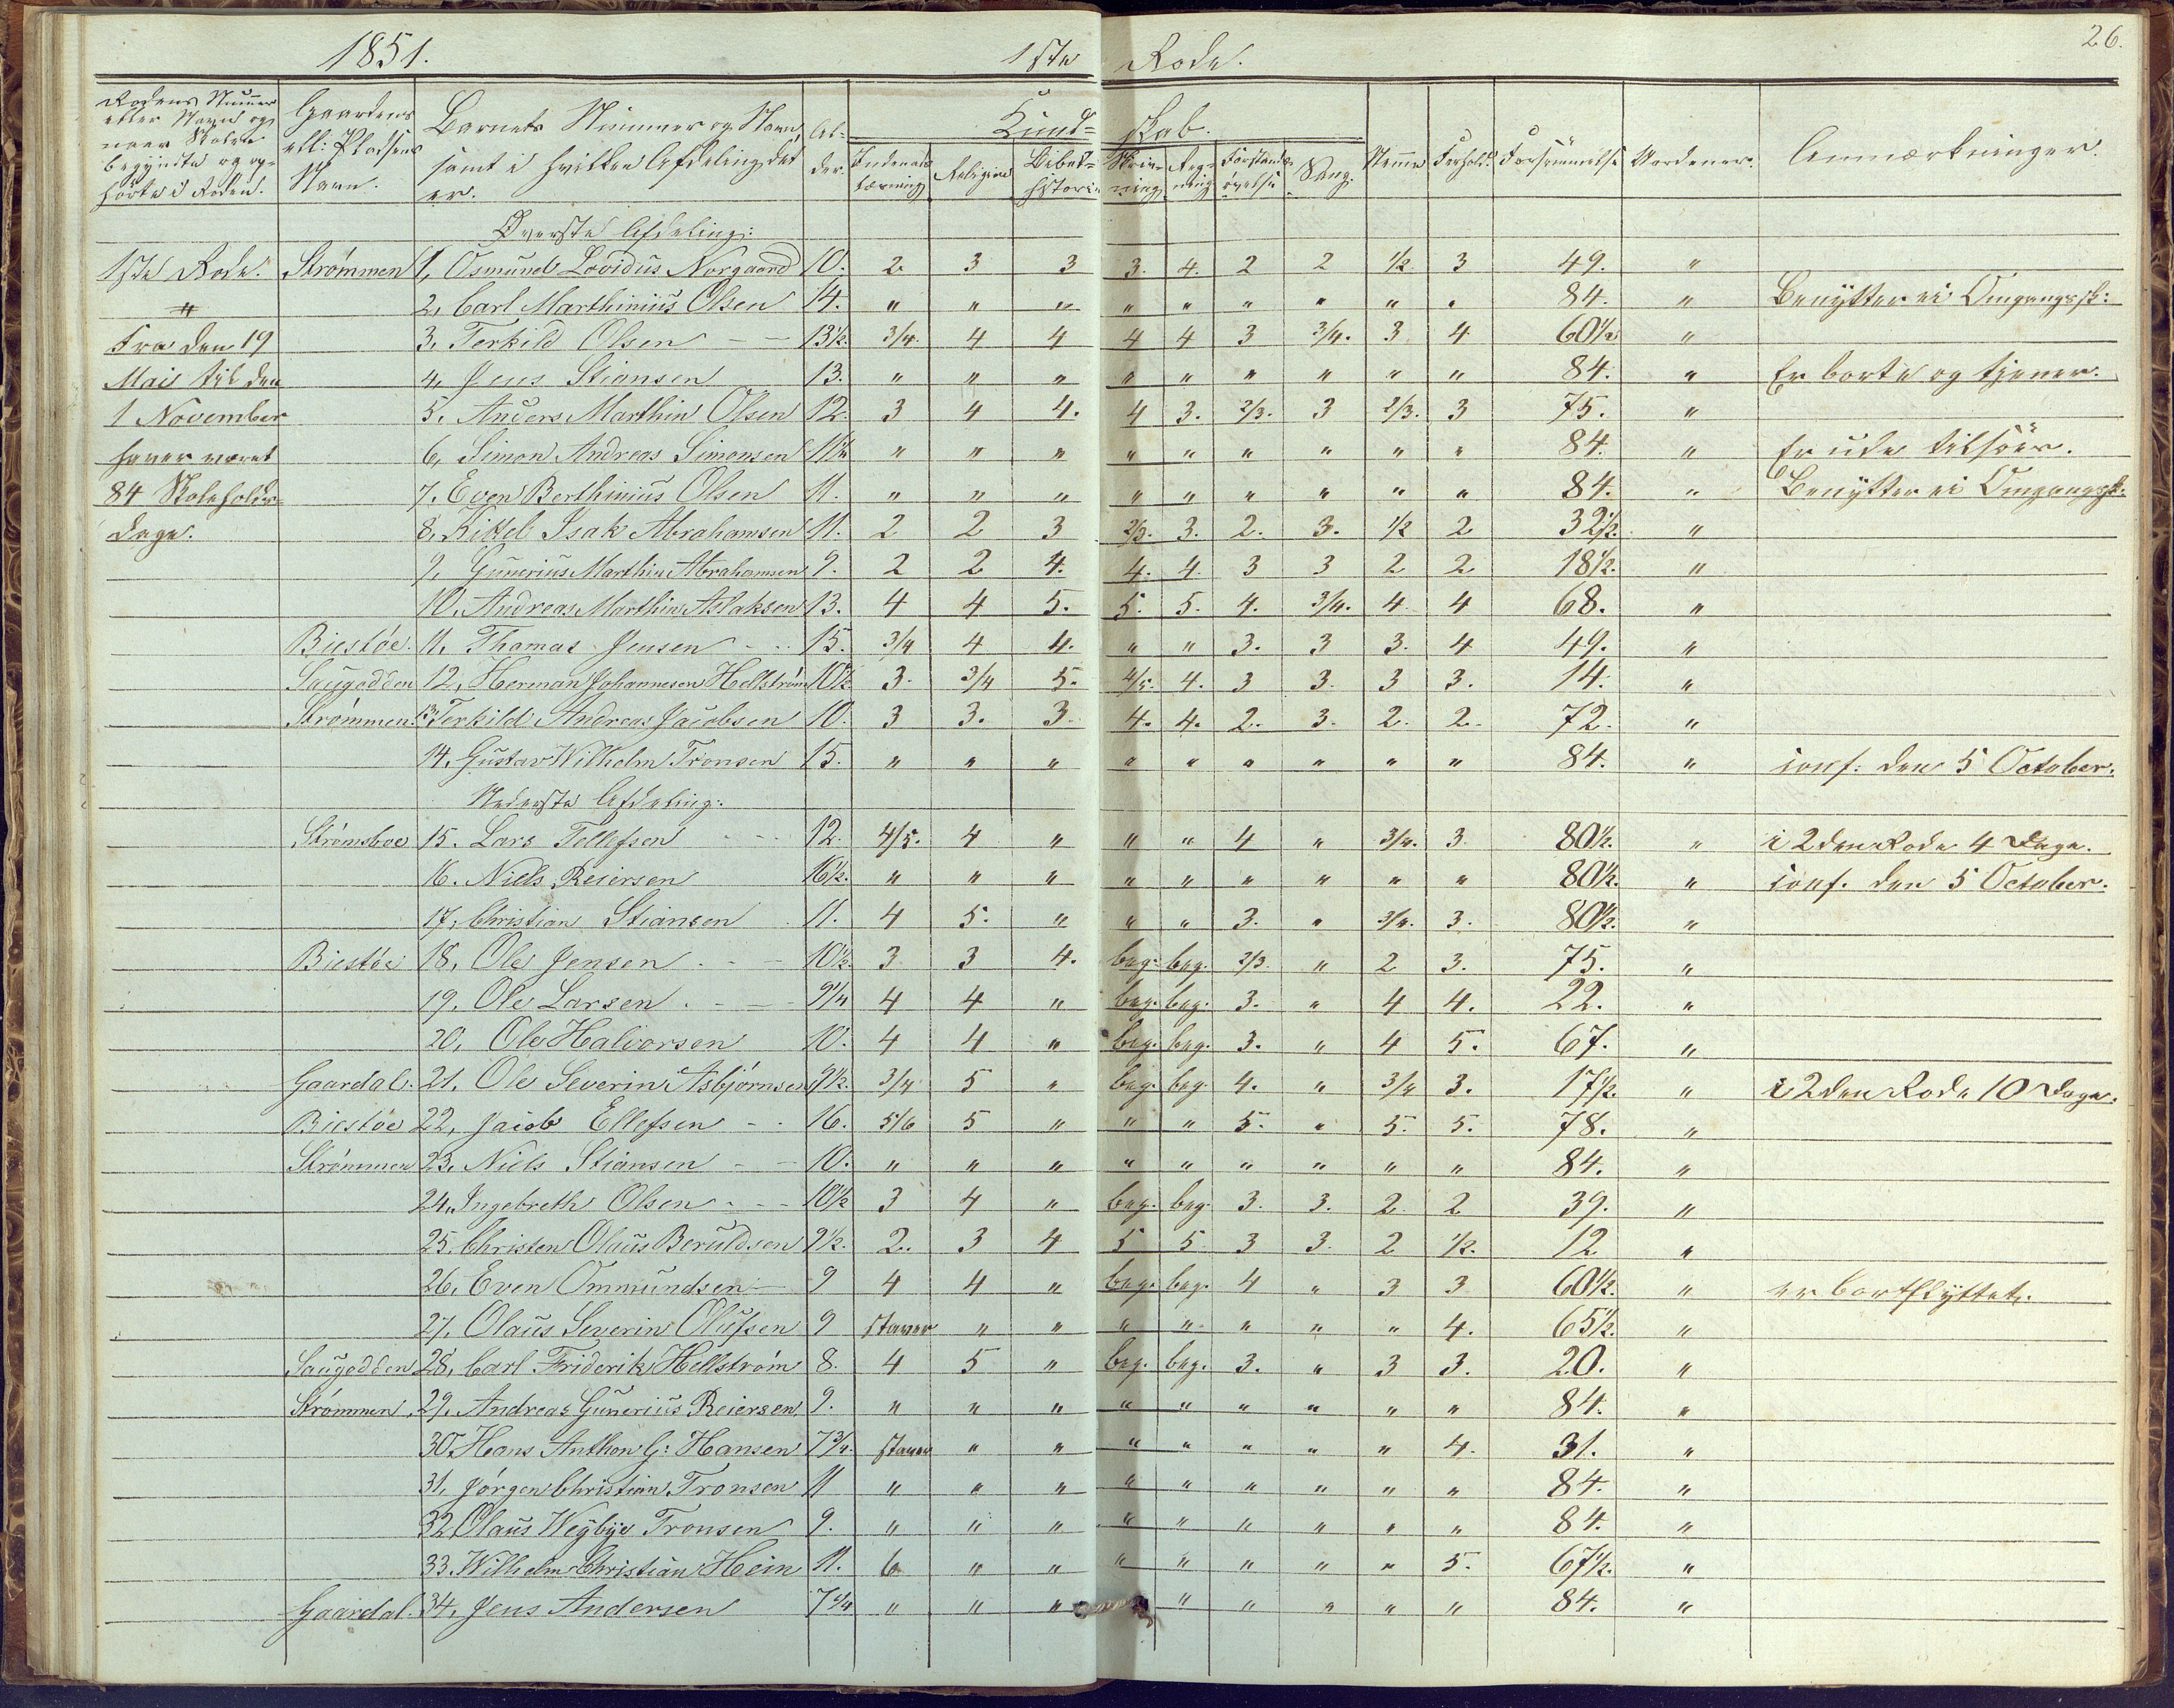 1851. 1ste Rode. 26.
Rodens Nummer eller Navn og naar Skolen begyndte og ophörte i Roden. | Gaardens ell: Pladsens Navn. | Barnets Nummer og Navn, samt i hvilken Afdeling det er. | Alder. | Kundskab. | Anmærkninger.
Indenadslæsning | Religion | Bibelhistorie | Skrivning | Regning | Forstandsøvelse | Sang. | Nemme | Forhold. | Forsømmelse | Vordener.
Øverste Afdeling:
1ste Rode. Strømmen 1, Osmund Lovidus Norgaard 10. 2 3 3 3. 4. 2 2 1/2 3 49. "
" 2, Carl Marthinius Olsen 14. " " " " " " " " " 84. " Benytter ei Omgangssk:
Fra den 19 3, Terkild Olsen - - 13 1/2. 3/4. 4 4 4 4 3 3/4. 3 4 60 1/2 "
Mai til den 4, Jens Stiansen 13. " " " " " " " " " 84. " Er borte og tjener.
1 November 5. Anders Marthin Olsen 12. 3 4 4. 4 3. 2/3. 3 2/3. 3 75. "
haver været 6, Simon Andreas Simonsen 11 1/4 " " " " " " " " " 84. " Er ude tilsöes.
84 Skoleholds- 7. Even Berthinius Olsen 11. " " " " " " " " " 84. " Benytter ei Omgangssk.
dage. 8, Kittel Isak Abrahamsen 11. 2 2 3 2/3. 3. 2. 3. 1/2 2 32 1/2. "
9, Gunerius Marthin Abrahamsen 9. 2 2 4. 4. 4. 3 3 2 2 18 1/2. "
10. Andreas Marthin Aslaksen 13. 4 4 5. 5. 5. 4. 3/4. 4 4 68. "
Biestöe. 11. Thomas Jensen - - 15. 3/4 4 4. " " 3. 3 3. 4 49. "
Saugodden 12, Herman Johannesen Hellström 10 1/2 3. 3/4 5. 4/5. 4. 3 3. 3 3. 14. "
Strømmen. 13. Terkild Andreas Jacobsen 10. 3 3. 3. 4. 4. 2. 3. 2. 2. 72. "
14. Gustav Wilhelm Tronsen 15. " " " " " " " " " 84. " conf: den 5 October.
Nederste Afdeling:
Strømsboe 15. Lars Tellefsen - - 12. 4/5. 4 " " " 4 " 3/4. 3 80 1/2. " i 2den Rode 4 Dage.
16. Niels Reiersen 16 1/2. " " " " " " " " " 80 1/2. " conf. den 5 October.
17, Christian Stiansen . 11. 4 5. " " " 3. " 3/4. 3. 80 1/2. "
Biestöe 18, Ole Jensen . - - 10 1/2. 3. 3 4. beg. beg. 2/3. " 2 3. 75. "
19, Ole Larsen . - - - 9 1/4 4 4 " beg. beg. 3. " 4 4. 22. "
20, Ole Halvorsen 10. 4 4 " beg. beg. 3. " 4 5. 67. "
Gaardal. 21. Ole Severin Asbjørnsen 9 1/2. 3/4 5 " beg. beg 4. " 3/4 3. 17 1/2. " i 2den Rode 10 Dage.
Biestöe 22, Jacob Ellefsen - . 16. 5/6 5 " " " 5. " 5. 5. 78. "
Strømmen 23, Niels Stiansen - - 10. " " " " " " " " " 84. "
24, Ingebreth Olsen - - - 10 1/2 3 4 " beg. beg. 3. 3. 2. 2 39. "
25. Christen Olaus Beruldsen 9 1/2. 2. 3 4 5 5. 3 3. 2 1/2. 12 "
26, Even Ommundsen - 9 4 4 " beg. beg. 4 " 3 3 60 1/2. " er bortflyttet.
27, Olaus Severin Olufsen 9 staver " " " " " " " 4. 65 1/2. "
Saugodden 28, Carl Friderik Hellström 8. 4 5 " beg. beg. 3. " 3 3. 20. "
Strømmen 29, Andreas Gunerius Reiersen 9. " " " " " " " " " 84. "
30. Hans Anthon G: Hansen 7 3/4. staver " " " " " " " 4. 31. "
31, Jörgen Christian Tronsen 11 " " " " " " " " " 84. "
32 Olaus Weybye Tronsen 9. " " " " " " " " " 84. "
33. Wilhelm Christian Hein 11. 6 " " " " " " " 5. 67 1/2. "
Gaardal. 34, Jens Andersen 7 1/4 " " " " " " " " 84. "